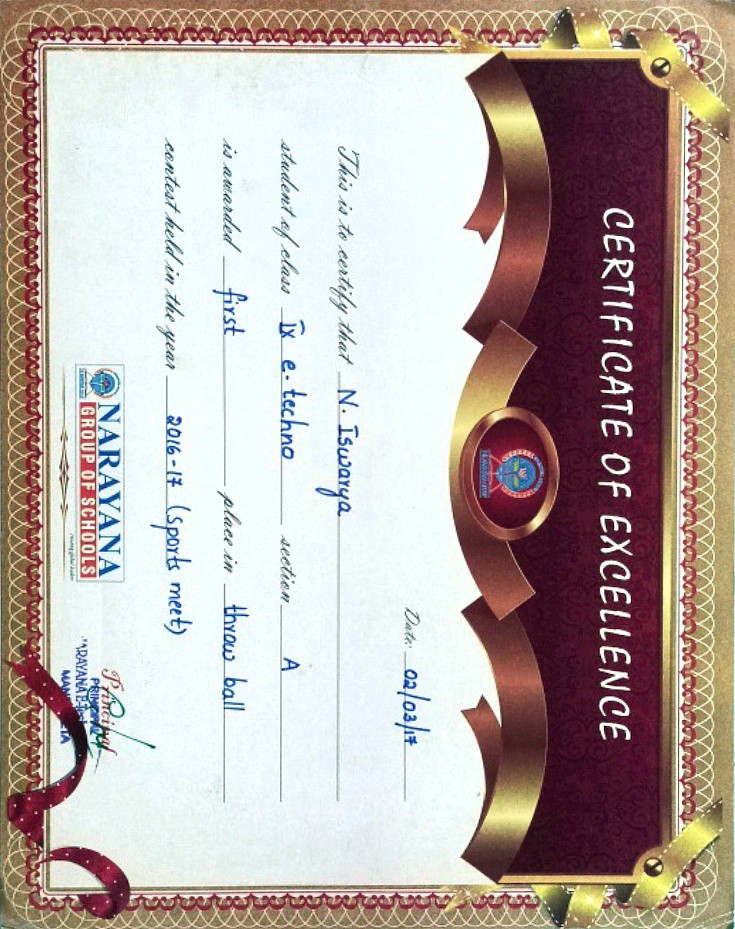 CERTIFICATE OF EXCELLENCE
Date: 02/03/17
This is to certify that N. Iswarya
student of class IX e-techno section A
is awarded first place in throw ball
contest held in the year 2016-17 (sports meet)
NARAYANA
GROUP OF SCHOOLS
Principal
PRINCIPAL